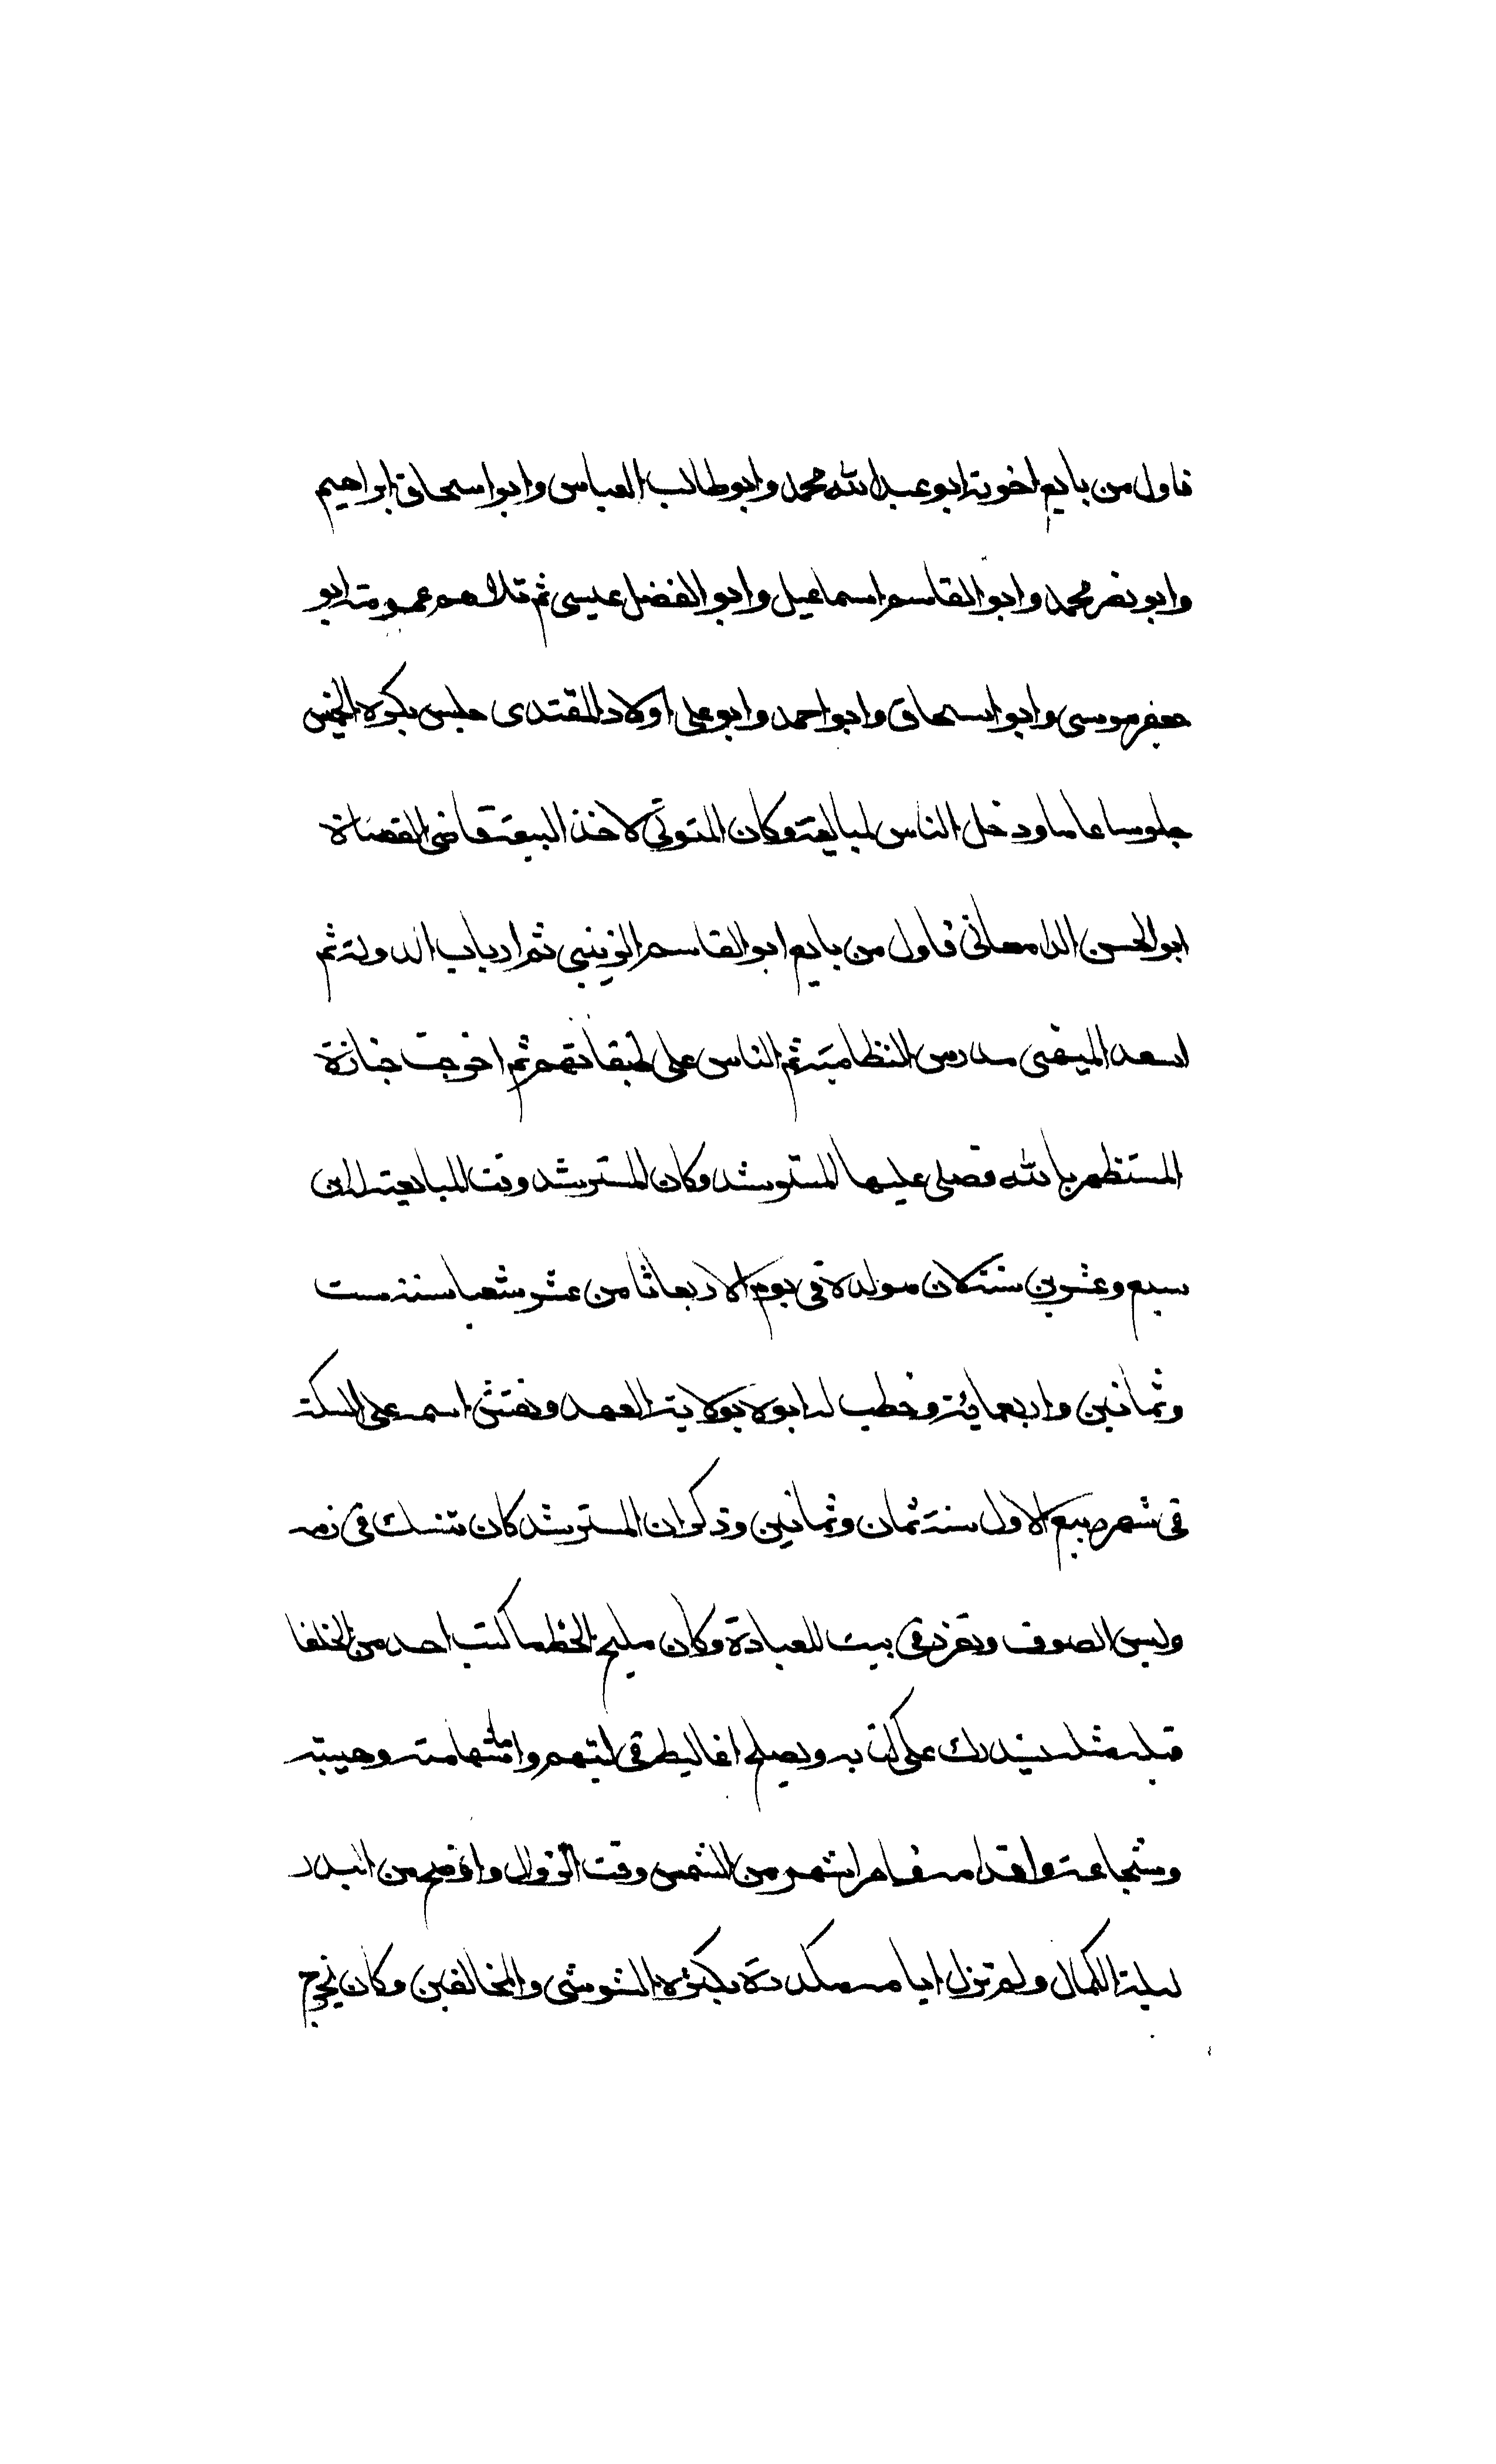 فاول من بايع اخوته ابو عبد الله محمد وابو طالب العباس وابو اسحاق ابراهيم
وابو نصر محمد وابو القاسم اسماعيل وابو الفضل عيسى ثم تلاهم عمومته ابو
جعفر موسى وابو اسحاق وابو احمد وابو على اولاد المقتدى جلس بكرة الخميس
جلوسا عاما ودخل الناس لمبايعته وكان المتولي لاخذ البيعة قاضى القضاة
ابو الحسن الدامغانى فاول من بايع ابو القاسم الزينبي ثم ارباب الدولة ثم
اسعد الميهنى مدرس النظامية ثم الناس على طبقاتهم ثم اخرجت جنازة
المستظهر بالله فصلى عليها المسترشد وكان المسترشد وقت المبايعة ابن
سبع وعشرين سنة كان مولده في يوم الاربعا ثامن عشر شعبا سنة ست
وثمانين واربعمائة وخطب له ابوه بولاية العهد ونقش اسمه على السكة
في شهر ربيع الاول سنة ثمان وثمانين وذكر ان المسترشد كان تنسك في زمنه
ولبس الصوف وتفرد في بيت للعبادة وكان مليح الخط ما كتب احد من الخلفا
قبله مثله يستدرك على كتابه ويصلح اغاليط في كتبهم واما شهامته وهيبته
وشجاعته واقدامه فامر اشهر من الشمس وقت الزوال واوضح من البدر
ليلة الكمال ولم تزل ايامه مكدرة بكثرة التشوش والمخالفين وكان يخرج